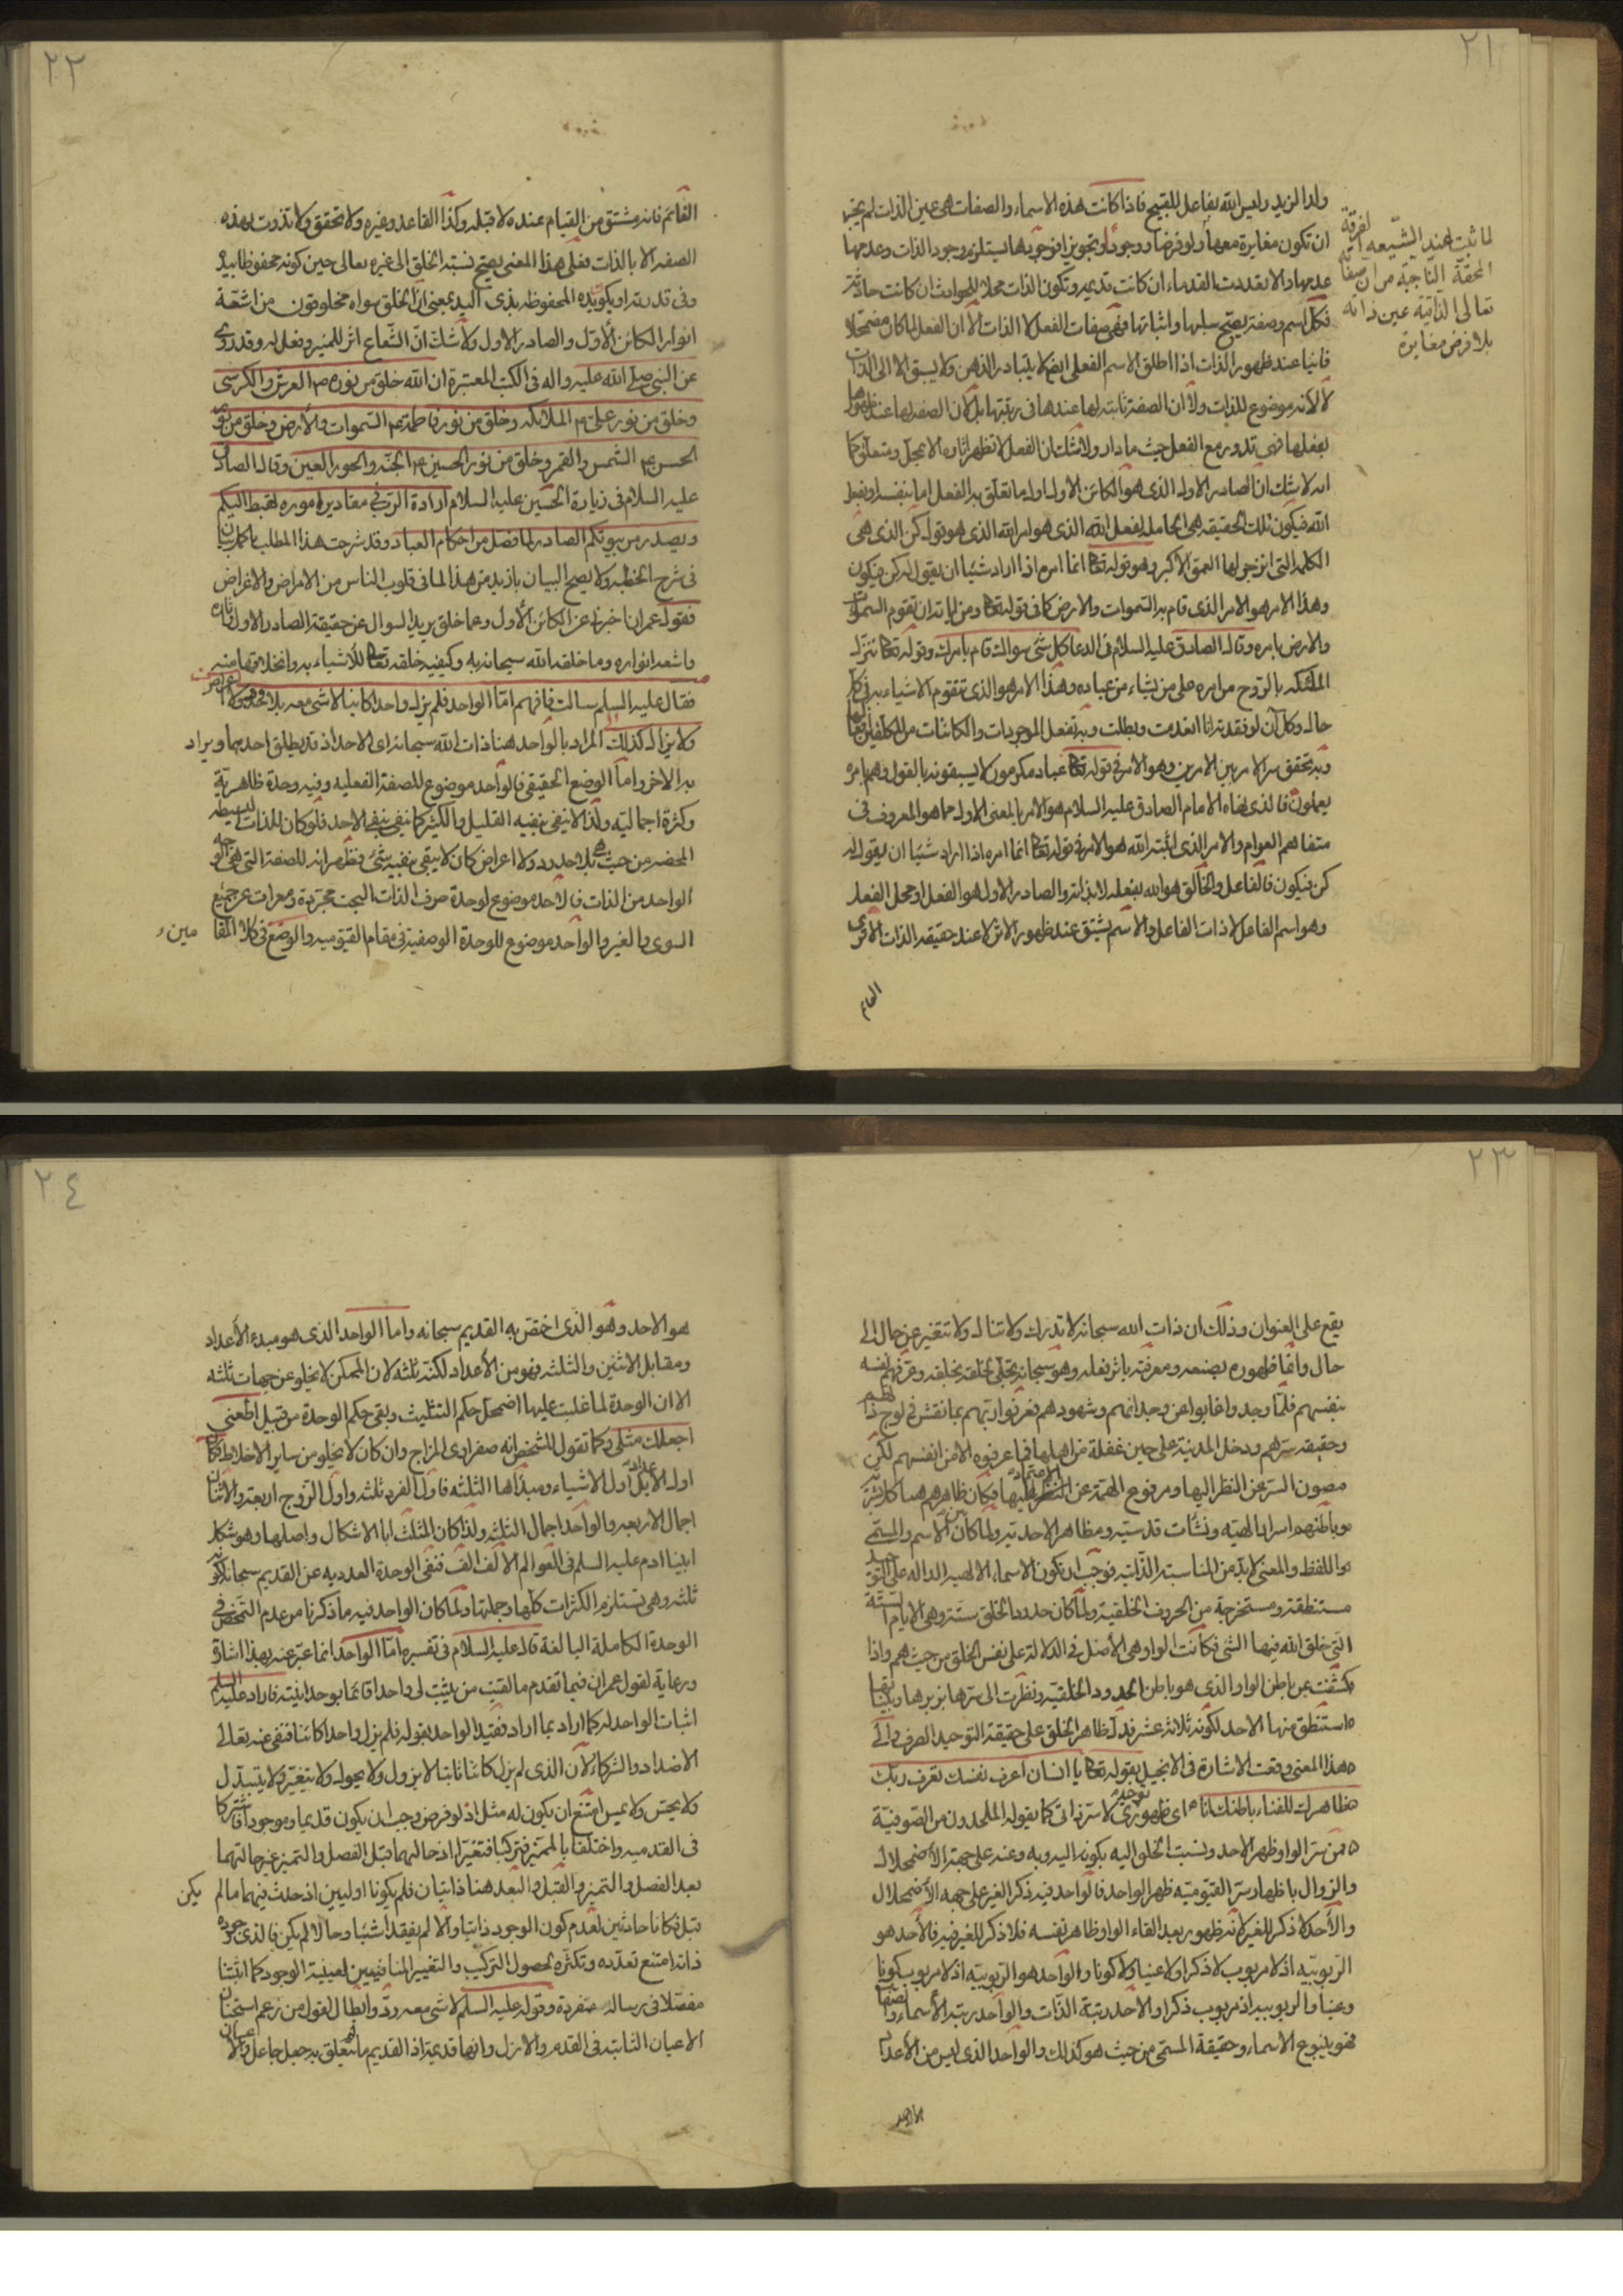 ٢١
ولد الزيد وليس الله بفاعل للقبيح فاذا كانت هذه الاسماء والصفات هى عين الذات لم يجز
ان تكون مغايرة معها ولو فرضا ووجودا وتجويزا فوجودها يستلزم وجود الذات وعدمها
عدمها والا تعددت القدماء ان كانت قديمه وتكون الذات محلا للحوادث ان كانت حادثة
فكل اسم وصفة يصح سلبها واثباتها فهى صفات الفعل لا الذات الا ان الفعل لما كان مضمحلا
فانيا عند ظهور الذات اذا اطلق الاسم الفعلى ايضا لا يتبادر الذهن ولا يسبق الا الى الذات
لا لانه موضوع للذات ولا ان الصفة ثابتة لها عندها فى رتبتها بل لان الصفة لها عند ظهورها
بفعلها فهى تدور مع الفعل حيث ما دار ولا شك ان الفعل لا تظهر اثاره الا بمحل ومتعلق كما
انه لا شك ان الصادر الاول الذى هو الكائن الاول اول ما تعلق به الفعل اما بنفسه او بفعل
الله فيكون تلك الحقيقه هى الحامله لفعل الله الذى هو امر الله الذى هو قوله كن الذى هى
الكلمه التى انزجر لها العمق الاكبر وهو قوله تعالى انما امره اذا اراد شيئا ان يقول له كن فيكون
وهذا الامر هو الامر الذى قام به السموات والارض كما فى قوله تعالى ومن اياته ان تقوم السموات
والارض بامره وقال الصادق عليه السلام فى الدعا كل شئ سواك قام بامرك وقوله تعالى ننزل
الملئكه بالروح من امره على من يشاء من عباده وهذا الامر هو الذى تتقوم الاشياء به فى كل
حال وكل آن لو فقدته انا انعدمت وبطلت وبه تفعل الموجودات والكائنات من المكلفين افعالها
وبه تحقق سر الامر بين الامرين وهو الامر فى قوله تعالى عباد مكرمون لا يسبقونه بالقول وهم بامره
يعملون فالذى نفاه الامام الصادق عليه السلام هو الامر بالمعنى الاول مما هو المعروف فى
متفاهم العوام والامر الذى اثبته الله هو الامر فى قوله تعالى انما امره اذا اراد شيئا ان يقول له
كن فيكون فالفاعل والخالق هو الله بفعله لا بذاته والصادر الاول هو الفعل او محل الفعل
وهو اسم الفاعل لا ذات الفاعل والاسم يشتق عند ظهور الاثر لا عند حقيقه الذات الا ترى
القائم
لما ثبت عند الشيعه الفرقة
المحقة الناجية من ان صفات
تعالى الذاتية عين ذاته
بلا فرض مغايرة
٢٢
القائم فانه مشتق من القيام عنده لا قبله وكذا القاعد وغيره ولا تحقق ولا تذوت بهذه
الصفه الا بالذات فعلى هذا المعنى يصح نسبة الخلق الى غيره تعالى حين كونه محفوظا بيده
وفى قدرته او بكون يده المحفوظه بذى اليد بمعنى ان الخلق سواه مخلوقون من اشعة
انوار الكائن الاول والصادر الاول ولا شك ان الشعاع اثر للمنير وفعل له وقد روى
عن النبى صلى الله عليه واله فى الكتب المعتبرة ان الله خلق من نوره ص العرش والكرسى
وخلق من نور على ع الملائكه وخلق من نور فاطمه ع السموات والارض وخلق من نور
الحسن ع الشمس والقمر وخلق من نور الحسين ع الجنه والحور العين وقال الصادق
عليه السلام فى زيارة الحسين عليه السلام ارادة الرب فى مقادير اموره تهبط اليكم
وتصدر من بيوتكم الصادر لما فصل من احكام العباد وقد شرحت هذا المطلب باكمل بيان
فى شرح الخطبه ولا يصح البيان بازيد من هذا لما فى قلوب الناس من الامراض والاغراض
فقول عمران اخبرنى عن الكائن الاول وعما خلق يريد السوال عن حقيقة الصادر الاول واثاره
واشعه انواره وما خلقه الله سبحانه به وكيفيه خلقه تعالى للاشياء به وانخلاقها منه
فقال عليه السلم سالت فافهم اما الواحد فلم يزل واحدا كائنا لا شئ معه بلا حدود ولا اعراض
ولا يزال كذلك المراد بالواحد هنا ذات الله سبحانه اى الاحد اذ قد يطلق احدهما ويراد
به الاخر واما الوضع الحقيقى فالواحد موضوع للصفة الفعليه وفيه وحدة ظاهرية
وكثرة اجماليه ولذا لا ينفى بنفيه القليل والكثير كما نفى بنفى الاحد فلو كان للذات البسيطه
المحضه من حيث هى بلا حدود ولا اعراض كان لا يبقى بنفيه شئ فظهر انه للصفة التى هى جهة
الواحد من الذات فالاحد موضوع لوحدة صرف الذات البحت مجردة ومعراة عن جميع
السوى والغير والواحد موضوع للوحدة الوصفية فى مقام القيوميه والوضع فى كلا المقامين
٢٣
يقع على العنوان وذلك ان ذات الله سبحانه لا تدرك ولا تنال ولا تتغير عن حال الى
حال وانما ظهوره بصنعه ومعرفته باثر فعله وهو سبحانه تجلى لخلقه بخلقه وعرفهم نفسه
بنفسهم فلما وجد واغابوا عن وجدانهم وشهودهم فعرفوا ربهم بما نقش فى لوح ذاتهم
وحقيقه سرهم ودخل المدينة على حين غفلة من اهلها فما عرفوه الا من انفسهم لكن
مصون السر عن النظر اليها ومرفوع الهمة عن الاعتماد عليها فكان ظاهرهم هياكل بشرية
وباطنهم اسرار الهيه ونشأت قدسيه ومظاهر الاحديه ولما كان بين الاسم والمسمى
واللفظ والمعنى لابد من المناسبة الذاتية فوجب ان تكون الاسماء الالهيه الداله على التوحيد
مستنطقة ومستخرجة من الحروف الخلقية ولما كان حدود الخلق ستة وهى الايام الستة
التى خلق الله فيها الشئ فكانت الواو هى الاصل فى الدلالة على نفس الخلق من حيث هم واذا
كشفت عن باطن الواو الذى هو باطن الحدود الخلقية ونظرت الى سرها بزبرها وبيناتها
استنطق منها الاحد لكونه ثلاثة عشر فدل ظاهر الخلق على حقيقة التوحيد الصرف والى
هذا المعنى وقعت الاشارة فى الانجيل بقوله تعالى يا انسان اعرف نفسك تعرف ربك
ظاهرك للفناء باطنك انا اى ظهورى لا سر ذاتى كما يقوله الملحدون من الصوفية
فمن سر الواو ظهر الاحد ونسبت الخلق اليه بكونه اليه وبه وعنه على جهة الاضمحلال
والزوال باظهار سر القيومية ظهر الواحد فالواحد فيه ذكر الغير على جهه الاضمحلال
والاحد لا ذكر للغير لانه ظهور بعد القاء الواو ظاهر نفسه فلا ذكر للغير فيه فالاحد هو
الربوبيه اذ لا مربوب لا ذكرا ولا عينا ولا كونا والواحد هو الربوبيه اذ لا مربوب كونا
وعينا والربوبيه اذ مربوب ذكرا والاحد رتبة الذات والواحد رتبه الاسماء والصفات
فهو ينبوع الاسماء وحقيقة المسمى من حيث هو كذلك والواحد الذى ليس من الاعداد
٢٤
هو الاحد وهو الذى اختص به القديم سبحانه واما الواحد الذى هو مبدء الأعداد
ومقابل الاثنين والثلثه فهو من الأعداد لكنه ثلثه لان الممكن لا يخلو عن جهات ثلثه
الا ان الوحدة لما غلبت عليها اضمحل حكم التثليث وبقى حكم الوحدة من قبيل اطعنى
اجعلك مثلى وكما تقول للشخص انه صفراوى المزاج وان كان لا يخلو من ساير الاخلاط فكان
اول الاعداد بل اول الاشياء ومبدأها الثلثه فاول الفرد ثلثه واول الزوج اربعة والاثنان
اجمال الاربعه والواحد اجمال الثلثه ولذا كان المثلث ابا الاشكال واصلها وهو شكل
ابينا ادم عليه السلم فى العوالم الالف الف فنفى الوحدة العدديه عن القديم سبحانه لكونه
ثلثه وهى تستلزم الكثرات كلها وجلها ولما كان الواحد فيه ما ذكرنا من عدم التمحض فى
الوحدة الكاملة البالغة قال عليه السلام فى تفسيره اما الواحد انما عبر عنه بهذا اشارة
ورعاية لقول عمران فيما تقدم ما لقيت من يثبت لى واحدا قائما بوحدانيته فاراد عليه السلم
اثبات الواحد له كما اراد بما اراد فقيد الواحد بقوله فلم يزل واحدا كائنا فنفى عنه تعالى
الاضداد والشركاء لأن الذى لم يزل كائنا ثابتا لا يزول ولا يحول ولا يتغير ولا يتبدل
ولا يحس ولا يمس امتنع ان يكون له مثل اذ لو فرض وجب ان يكون قديما وموجودا فاشتركا
فى القدميه واختلفا بالمميز فتركبا فتغيرا اذ حالهما قبل الفصل والتميز غير حالتهما
بعد الفصل والتميز والقبل والبعد هنا ذاتيان فلم يكونا اوليين اذ حدث فيهما ما لم يكن
قبل فكانا حادثين لعدم كون الوجود ذاتيا والا لم يفقد اشيئا وحالا لم يكن فالذى وجوده
ذاته امتنع تعدده وتكثره لحصول التركيب والتغيير المنافيين لعينية الوجود كما اثبتنا
مفصلا فى رسالة منفردة وقوله عليه السلم لا شئ معه رد وابطال لقول من زعم استجنان
الاعيان الثابته فى القدم والازل وانها قديمة اذ القديم ما تعلق به جعل جاعل والاعيان